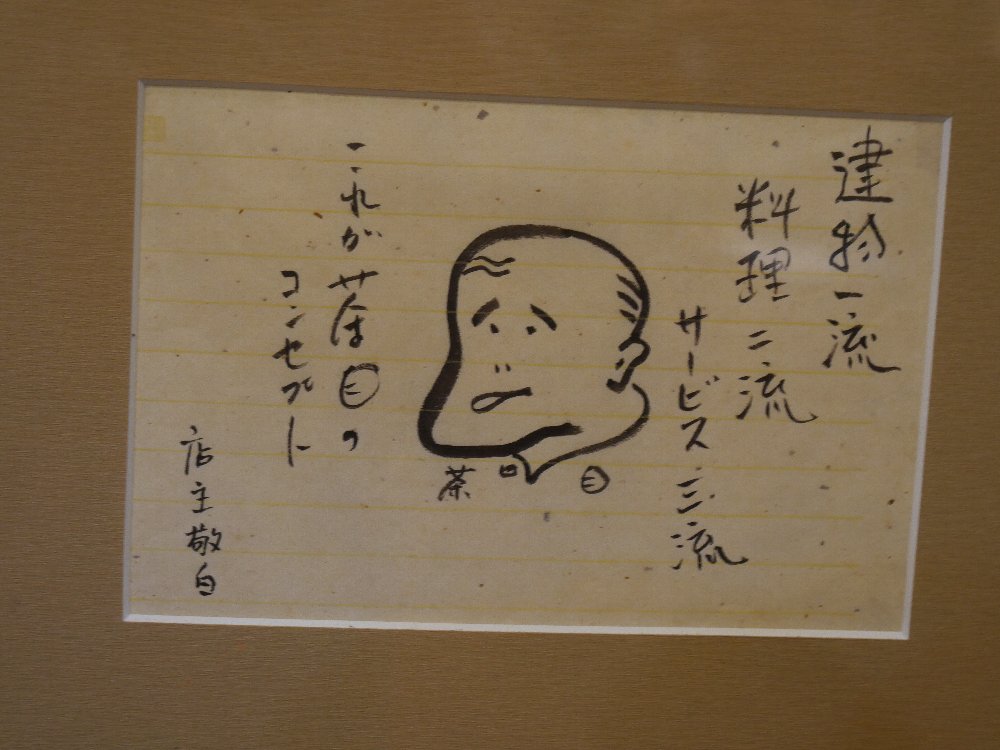 建物一流
料理二流
サービス三流
茶 日
これが茶目の
コンセプト
店主敬白